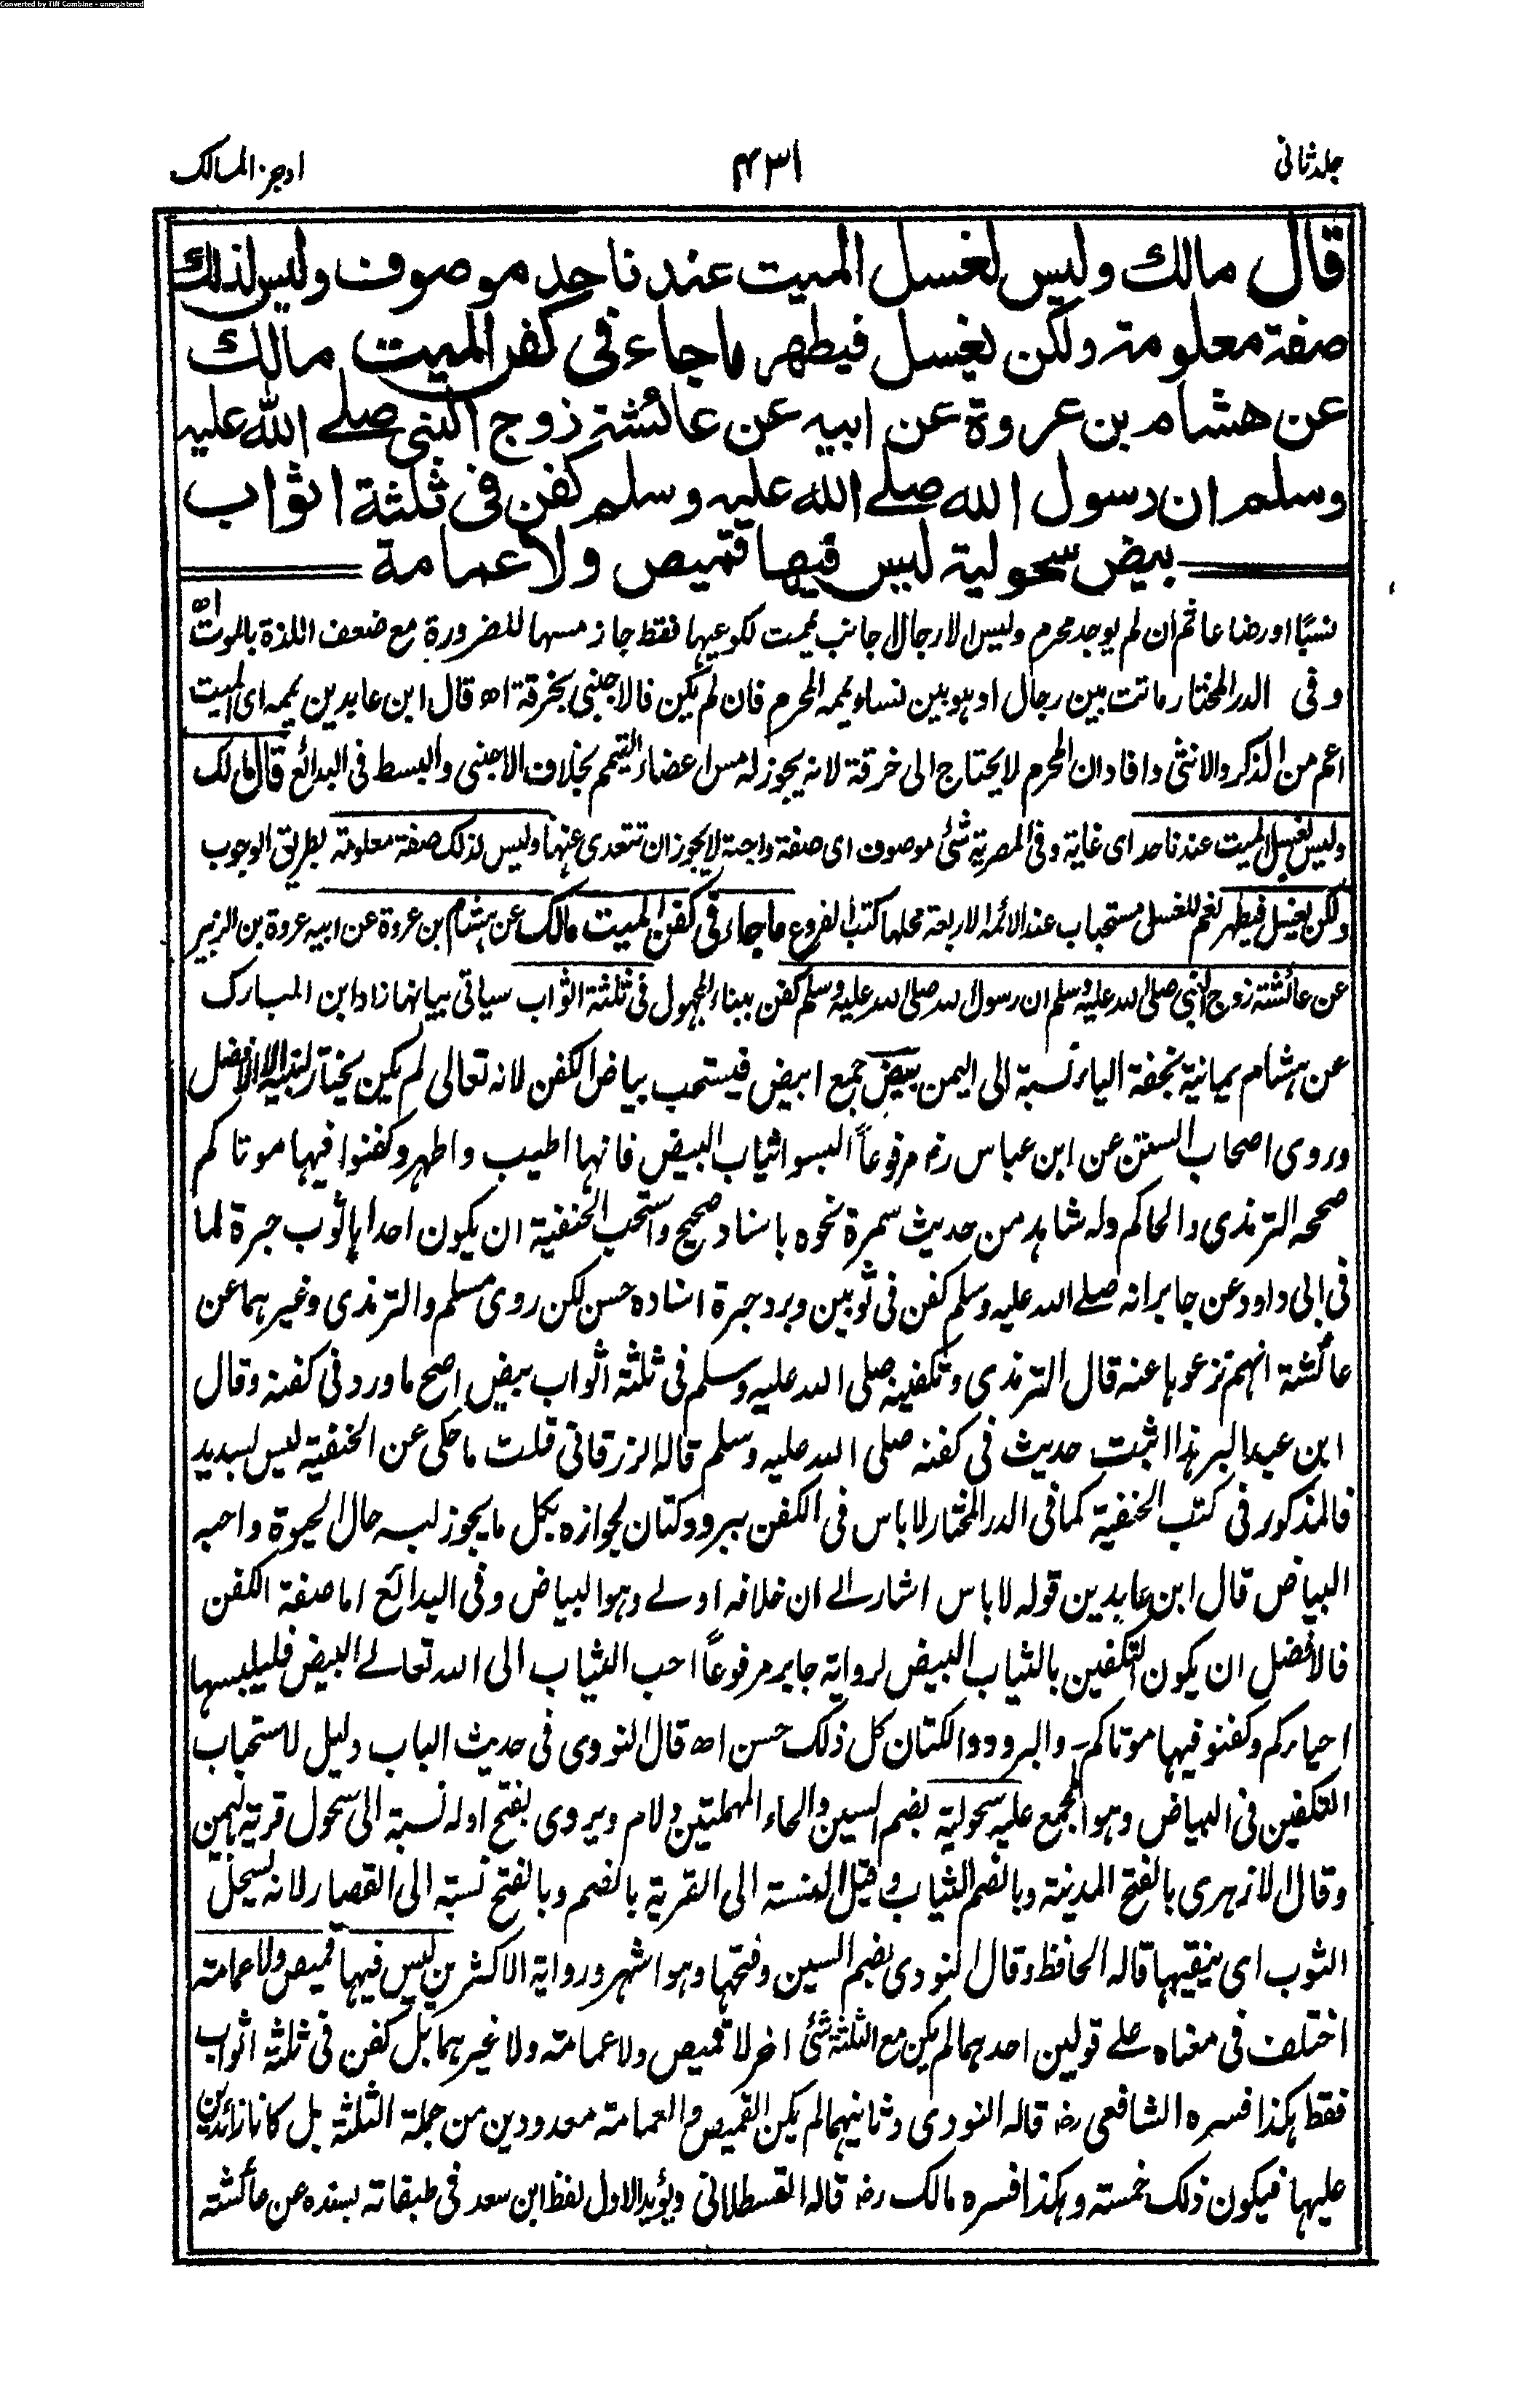 Converted by Tiff Combine - unregistered
جلد ثانی
۴۳۱
اوجز المسالک
قال مالك وليس لغسل الميت عندنا حد موصوف وليس لذلك
صفة معلومة ولكن يغسل فيطهر ماجاء في كفن الميت مالك
عن هشام بن عروة عن ابيه عن عائشة زوج النبي صلے الله عليه
وسلم ان رسول الله صلے الله عليه وسلم كفن في ثلثة اثواب
بيض سحولية ليس فيها قميص ولا عمامة
نسبًا او رضاعا ثم ان لم يوجد محرم وليس الا رجال اجانب يممت لكوعيها فقط جاز مسها للضرورة مع ضعف اللذة بالموت اھ
وفى الدر المختار ماتت بين رجال او هو بين نساء يممه المحرم فان لم يكن فالاجنبى بخرقة اھ قال ابن عابدين يممه اى الميت
اعم من الذكر والانثى وافاد ان المحرم لا يحتاج الى خرقة لانه يجوز له مس اعضاء التيمم بخلاف الاجنبى والبسط فى البدائع قال مالك
وليس لغسل الميت عندنا حد اى غاية وفى المصرية شئ موصوف اى صفة واجبة لا يجوز ان تتعدى عنها وليس لذلك صفة معلومة بطريق الوجوب
ولكن يغسل فيطهر نعم للغسل مستحبات عند الائمة الاربعة محلها كتب الفروع ماجاء فى كفن الميت مالك عن هشام بن عروة عن ابيه عروة بن الزبير
عن عائشة زوج النبى صلى الله عليه وسلم ان رسول الله صلى الله عليه وسلم كفن ببناء المجهول فى ثلثة اثواب سياتى بيانها زاد ابن المبارك
عن هشام يمانية بخفة الياء نسبة الى اليمن بيض جمع ابيض فيستحب بياض الكفن لانه تعالى لم يكن يختار لنبيه الا الافضل
وروى اصحاب السنن عن ابن عباس رض مرفوعاً البسوا ثياب البيض فانها اطيب واطهر وكفنوا فيها موتاكم
صححه الترمذى والحاكم وله شاهد من حديث سمرة نحوه باسناد صحيح واستحب الحنفية ان يكون احدها ثوب حبرة لما
فى ابى داود عن جابر انه صلے الله عليه وسلم كفن فى ثوبين وبرد حبرة اسناده حسن لكن روى مسلم والترمذى وغيرهما عن
عائشة انهم نزعوها عنه قال الترمذى وتكفينه صلى الله عليه وسلم فى ثلثة اثواب بيض اصح ما ورد فى كفنه وقال
ابن عبد البر هذا اثبت حديث فى كفنه صلى الله عليه وسلم قاله الزرقانى قلت ما حكى عن الحنفية ليس بسديد
فالمذكور فى كتب الحنفية كما فى الدر المختار لا باس فى الكفن ببرود وكتان لجوازه بكل ما يجوز لبسه حال الحيوة واحبه
البياض قال ابن عابدين قوله لا باس اشار الے ان خلافه اولے وهو البياض وفى البدائع اما صفة الكفن
فالافضل ان يكون التكفين بالثياب البيض لرواية جابر مرفوعاً احب الثياب الى الله تعالے البيض فليلبسها
احياركم وكفنو فيها موتاكم والبرود والكتان كل ذلك حسن اھ قال النووى فى حديث الباب دليل لاستحباب
التكفين فى البياض وهو المجمع عليه سحولية بضم السين والحاء المهملتين ولام ويروى بفتح اوله نسبة الى سحول قرية باليمن
وقال الازهرى بالفتح المدينة وبالضم الثياب وقيل النسبة الى القرية بالضم وبالفتح نسبة الى القصار لانه يسحل
الثوب اى ينقيها قاله الحافظ وقال النووى بضم السين وفتحها وهو اشهر ورواية الاكثرين ليس فيها قميص ولا عمامة
اختلف فى معناه علے قولين احدهما لم يكن مع الثلثة شئ اخر لا قميص ولا عمامة ولا غيرهما بل كفن فى ثلثة اثواب
فقط هكذا فسره الشافعى رض قاله النووى وثانيهما لم يكن القميص والعمامة معدودين من جملة الثلثة بل كانا زائدين
عليها فيكون ذلك خمسة وهكذا فسره مالك رض قاله القسطلانى ويؤيد الاول لفظ ابن سعد فى طبقاته بسنده عن عائشة